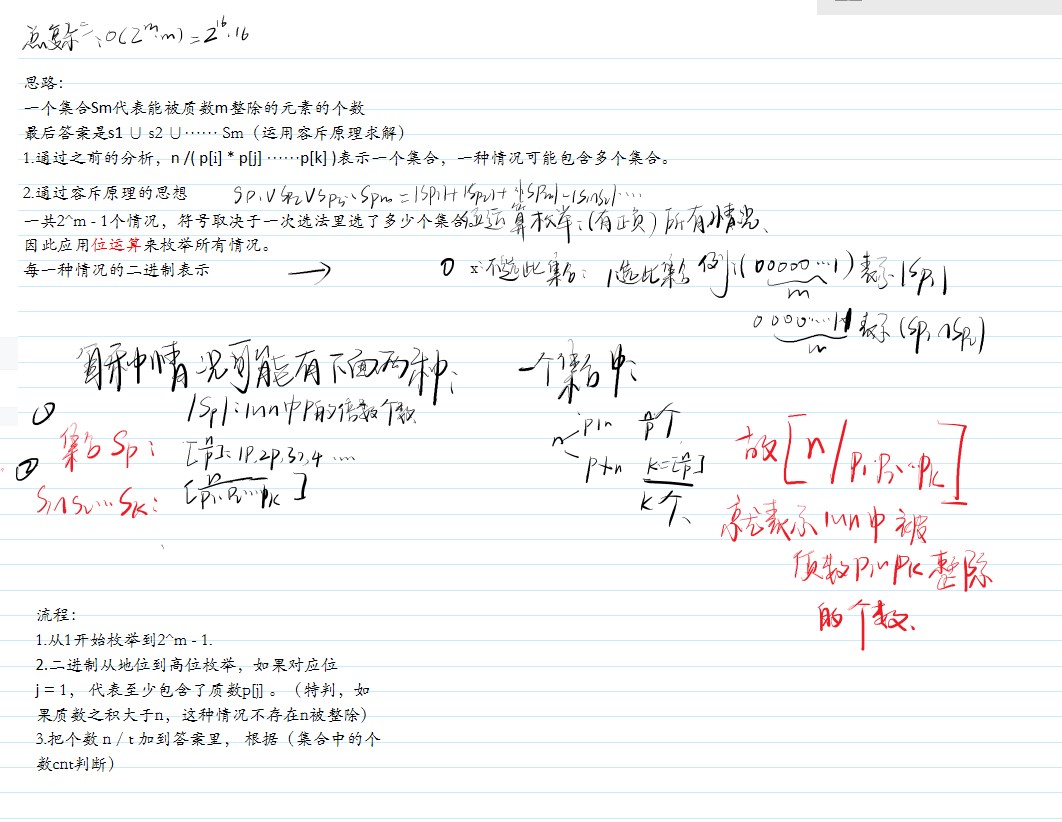 总复杂: O(2^m·m) = 2^16·16
思路：
一个集合Sm代表能被质数m整除的元素的个数
最后答案是s1 ∪ s2 ∪…… Sm（运用容斥原理求解）
1.通过之前的分析，n /( p[i] * p[j] ……p[k] )表示一个集合，一种情况可能包含多个集合。
2.通过容斥原理的思想
一共2^m - 1个情况，符号取决于一次选法里选了多少个集合。 位运算枚举：(有正负) 所有情况、
因此应用位运算来枚举所有情况。
每一种情况的二进制表示 → 0 x:不选此集合： 1选此集合 例：(00000…1) 表示|Sp1|
m
0000……11 表示 (Sp1∩Sp2)
m
每种情况可能有下面两种： 一个集合中：
① |Sp|：1~n中P的倍数个数
集合Sp： [n/p]: 1P,2P,3P,4 ….
② S1∩S2…Sk： [n/p1·p2…pk]
n p|n n/p个
p∤n k=[n/p]
k个、
故[n/p1·p2…pk]
就表示1~n中被
质数P1~Pk整除
的个数.
流程：
1.从1开始枚举到2^m - 1.
2.二进制从地位到高位枚举，如果对应位
j = 1， 代表至少包含了质数p[j] 。（特判，如
果质数之积大于n，这种情况不存在n被整除）
3.把个数 n / t 加到答案里， 根据（集合中的个
数cnt判断）